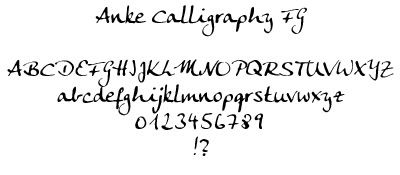 Anke Calligraphy FG
ABCDEFGHIJKLMNOPQRSTUVWXYZ
abcdefghijklmnopqrstuvwxyz
0123456789
!?